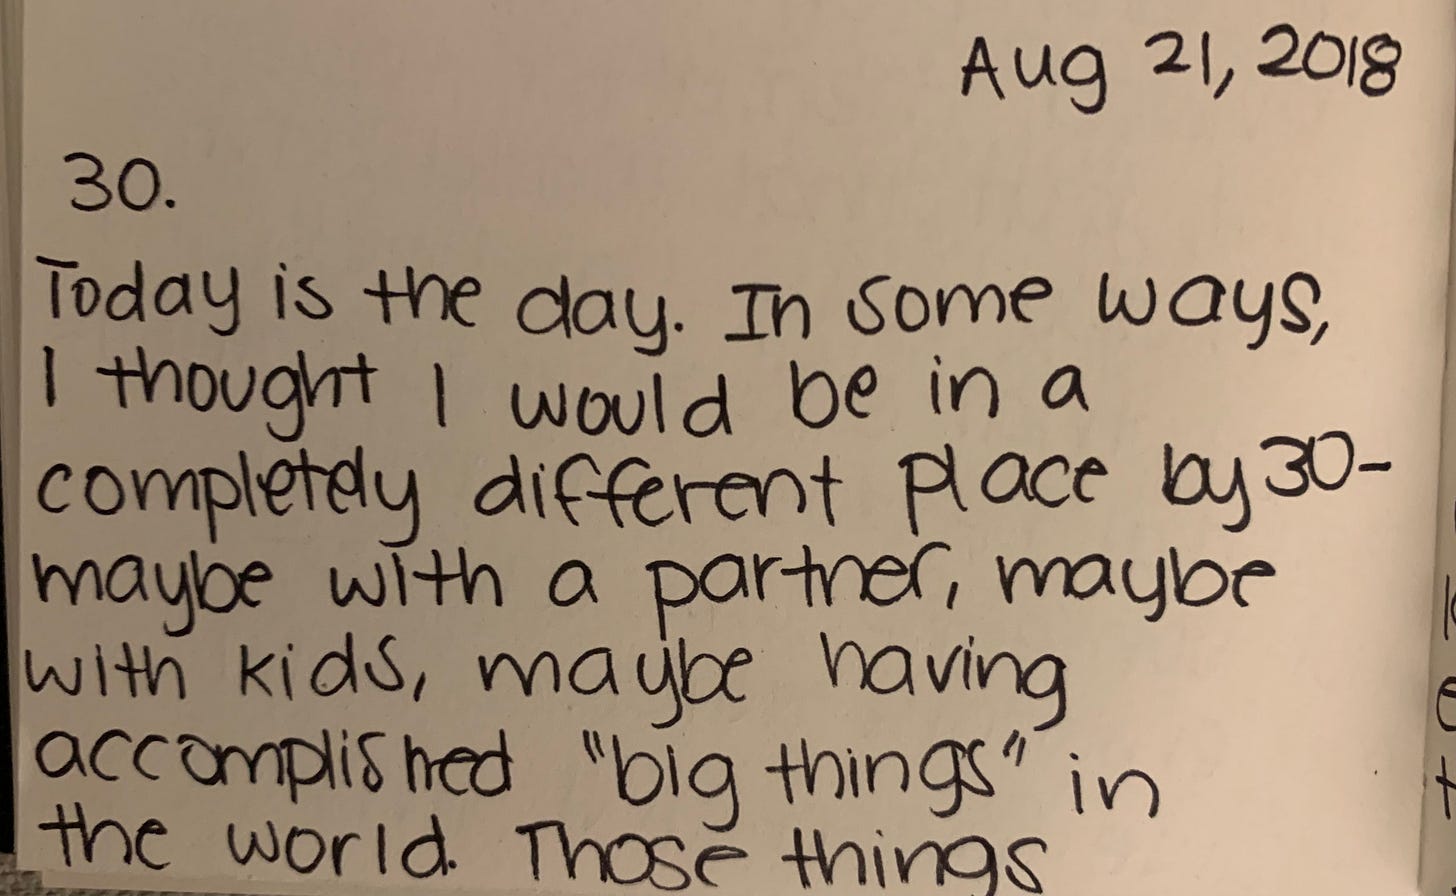 Aug 21, 2018
30.
Today is the day. In some ways,
I thought I would be in a
completely different place by 30-
maybe with a partner, maybe
with kids, maybe having
accomplished "big things" in
the world. Those things